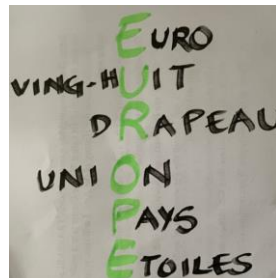 EURO
VING-HUIT
DRAPEAU
UNION
PAYS
ETOILES